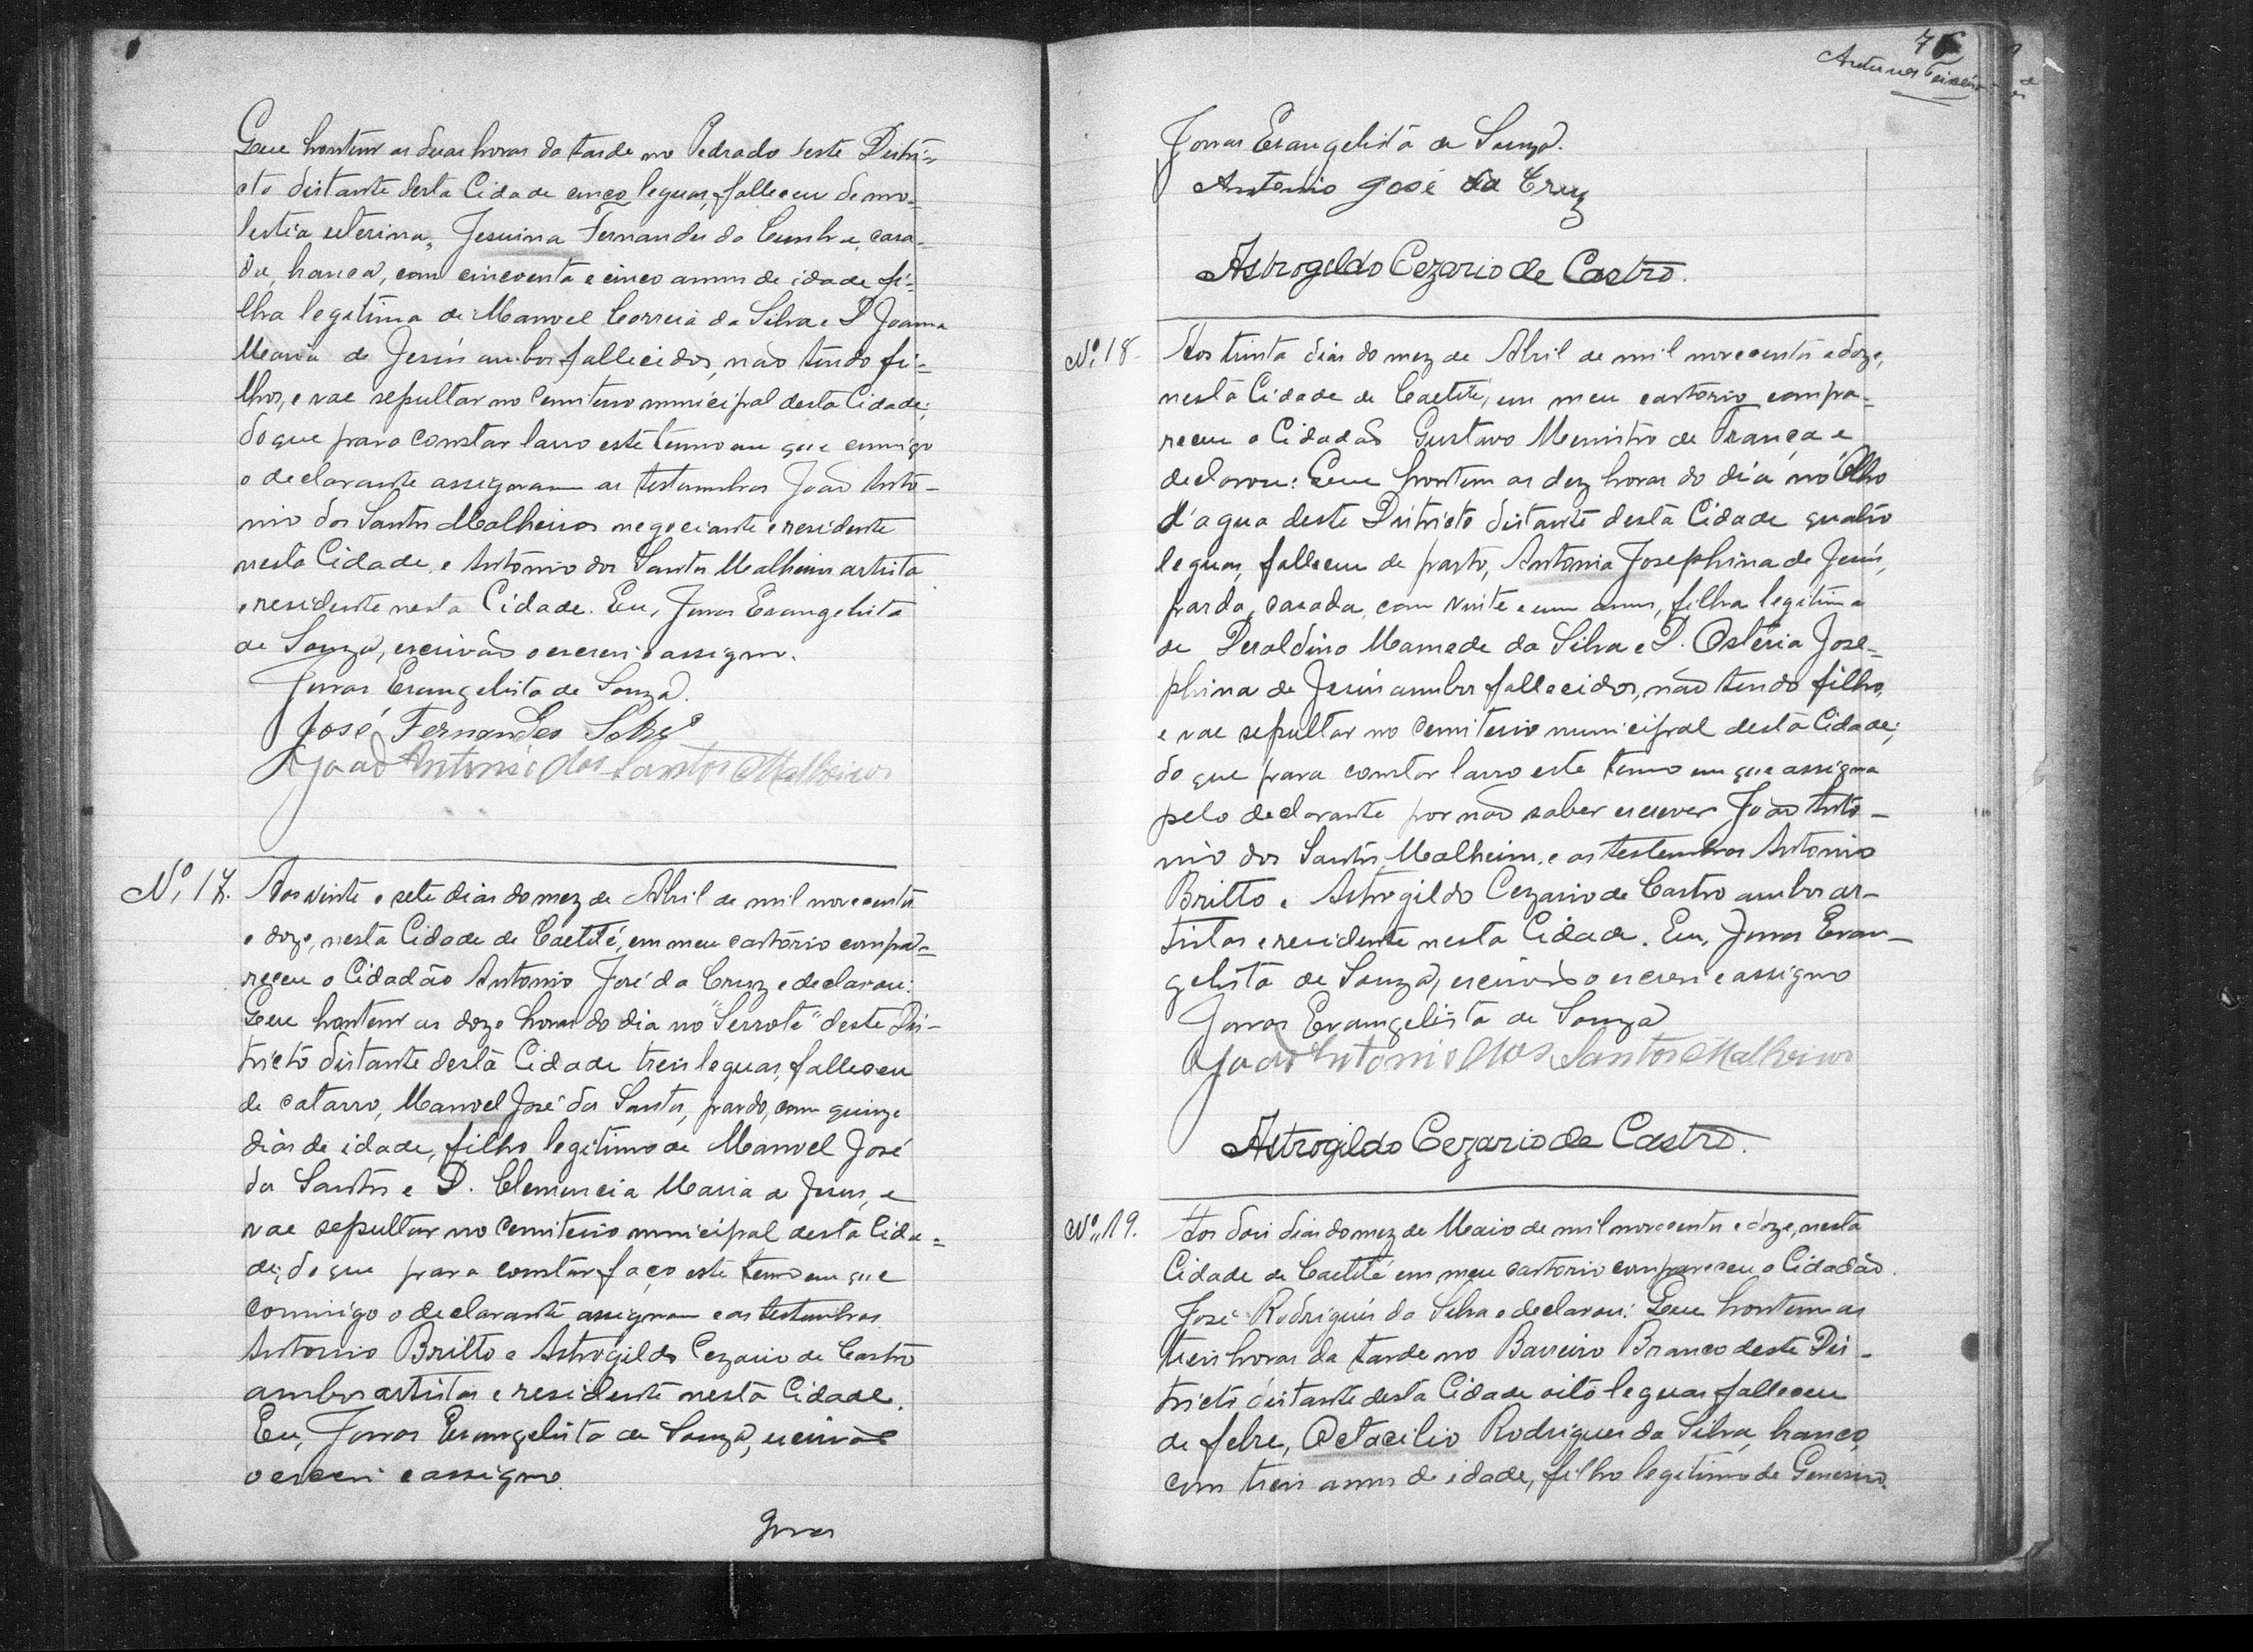 Que hontem as duas horas da tarde no Pedrado deste Distri=
cto distante desta Cidade cinco leguas, falleceu de mo=
lestia uterina, Jesuina Fernandes da Cunha, casa=
da, branca, com cincoenta e cinco annos de idade fi=
lha legitima de Manoel Correia da Silva e D. Joanna
Maria de Jesus ambos fallecidos, não tendo fi=
lhos, e vae sepultar no Cemiterio municipal desta Cidade;
do que para constar lavro este termo em que commigo
o declarante assignam as testemunhas João Anto-
nio dos Santos Malheiros negociante e residente
nesta Cidade, e Antonio dos Santos Malheiros artista
e residente nesta Cidade. Eu, Jonas Evangelista
de Souza, escrivão o escrevi e assigno.
Jonas Evangelista de Souza.
José Fernandes
João Antonio dos Santos Malheiros
Nº. 17. Aos vinte e sete dias do mez de Abril de mil novecentos
e doze, nesta Cidade de Caetité, em meu cartorio compa=
receu o Cidadão Antonio José da Cruz e declarou:
Que hontem as doze horas do dia no "Serrote" deste Dis-
tricto distante desta Cidade treis leguas, falleceu
de catarro, Manoel José dos Santos, pardo, com quinze
dias de idade, filho legitimo de Manoel José
dos Santos e D. Clemencia Maria de Jesus, e
vae sepultar no Cemiterio municipal desta Cida=
de; do que para constar faço este termo em que
commigo o declarante assignam e as testemunhas
Antonio Britto e Astrogildo Cezario de Castro
ambos artistas e residente nesta Cidade.
Eu, Jonas Evangelista de Souza, escrivão
o escrevi e assigno.
Jonas
Antunes Teixeira
Jonas Evangelista de Souza.
Antonio José da Cruz
Astrogildo Cezario de Castro.
Nº. 18. Aos trinta dias do mez de Abril de mil novecentos e doze,
nesta Cidade de Caetité, em meu cartorio compa=
receu o Cidadão Gustavo de França e
declarou: Que hontem as dez horas do dia no Olho
d'agua deste Districto distante desta Cidade quatro
leguas, falleceu de parto, Antonia Josephina de Jesus,
parda, casada, com vinte e um annos, filha legitima
de Deraldino Mamede da Silva e D. Josе=
phina de Jesus ambos fallecidos, não tendo filho,
e vae sepultar no cemiterio municipal desta Cidade;
do que para constar lavro este termo em que assigna
pelo declarante por não saber escrever João Anto-
nio dos Santos Malheiros, e as testemunhas Antonio
Britto e Astrogildo Cezario de Castro ambos ar-
tistas e residente nesta Cidade. Eu, Jonas Evan-
gelista de Souza, escrivão o escrevi e assigno
Jonas Evangelista de Souza
João Antonio dos Santos Malheiros
Astrogildo Cezario de Castro.
Nº. 19. Aos dois dias do mez de Maio de mil novecentos e doze, nesta
Cidade de Caetité em meu cartorio compareceu o Cidadão
José Rodrigues da Silva e declarou: Que hontem as
treis horas da tarde no Barreiro Branco deste Dis-
tricto distante desta Cidade oito leguas falleceu
de febre, Octacilio Rodrigues da Silva, branco,
com treis annos de idade, filho legitimo de Genesino